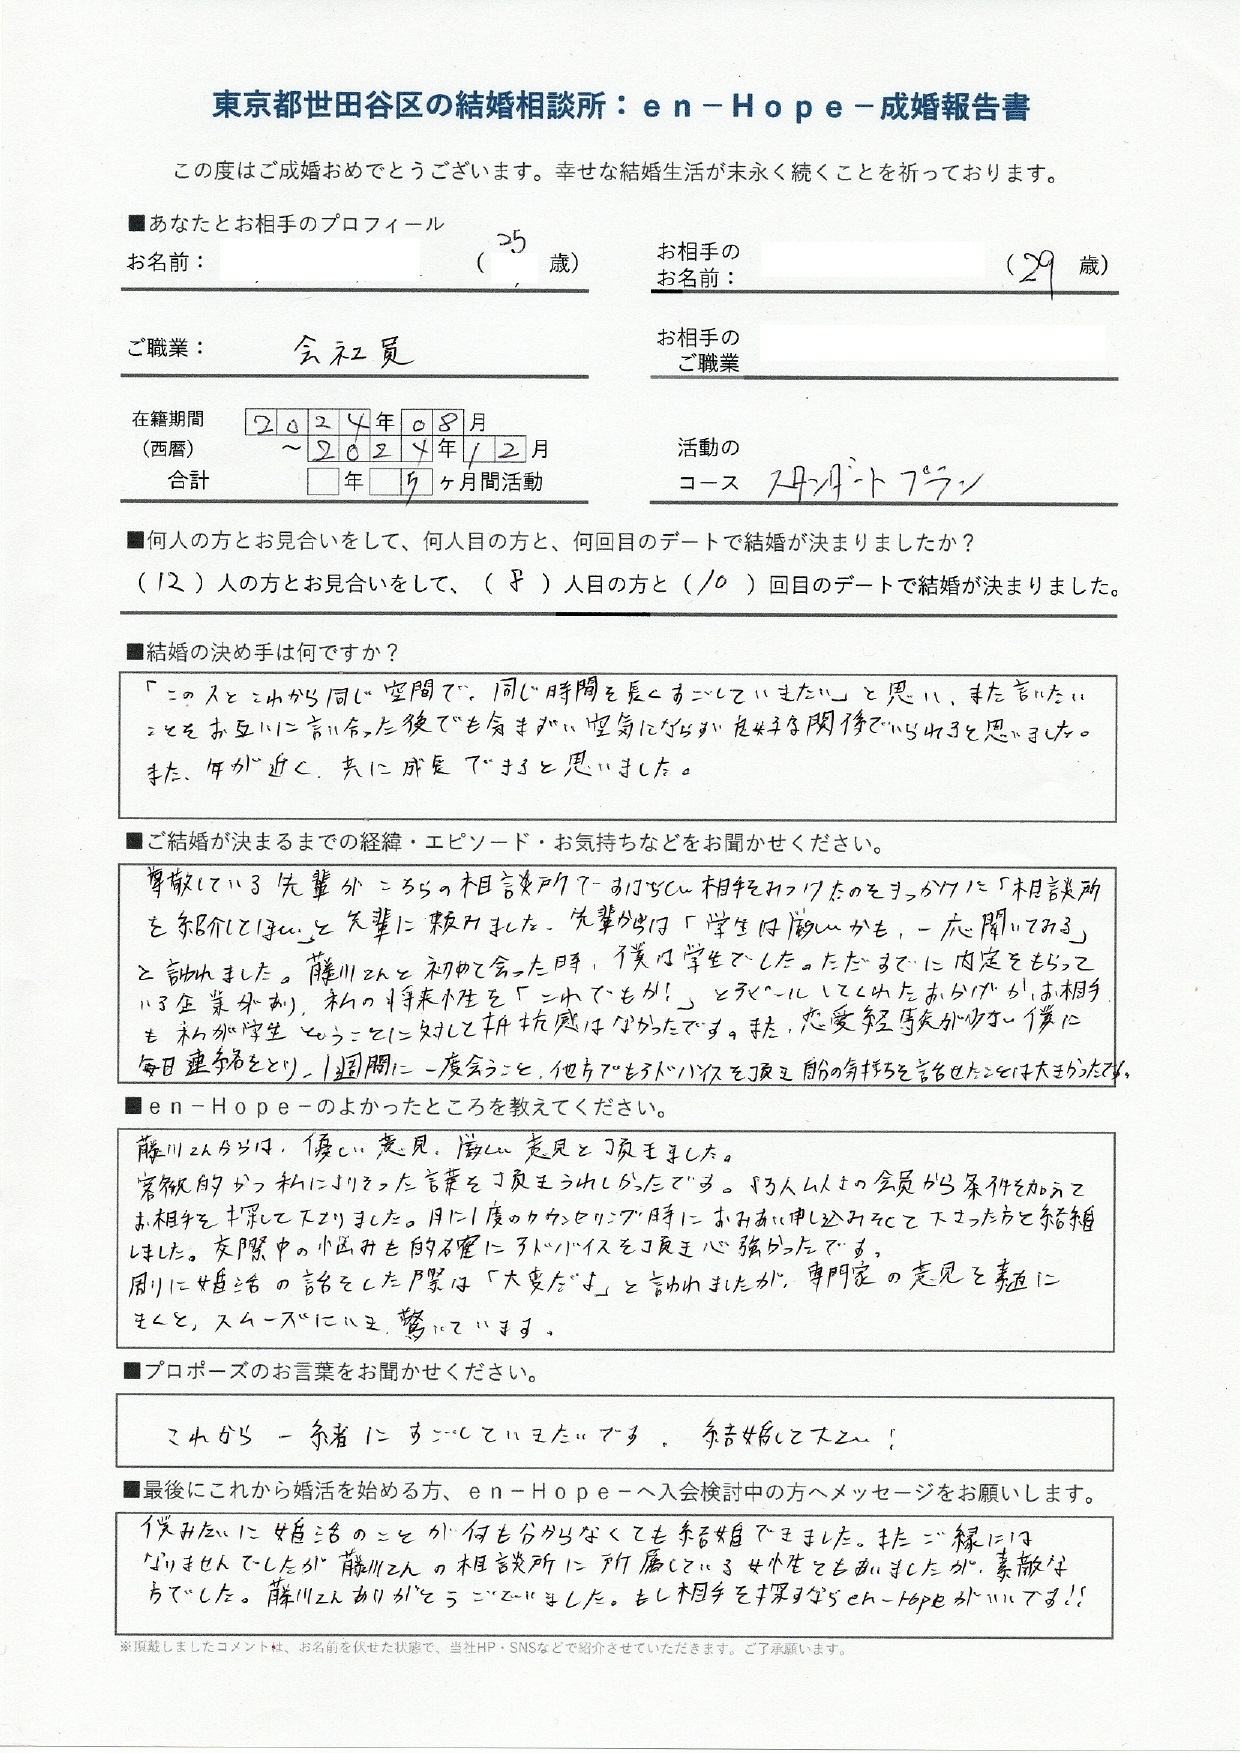 東京都世田谷区の結婚相談所：ｅｎ－Ｈｏｐｅ－成婚報告書
この度はご成婚おめでとうございます。幸せな結婚生活が末永く続くことを祈っております。
■あなたとお相手のプロフィール
お名前： （25歳） お相手のお名前： （29歳）
ご職業： 会社員 お相手のご職業
在籍期間 2024年08月
（西暦） ～2024年12月 活動の
合計 年 5ヶ月間活動 コース スタンダートプラン
■何人の方とお見合いをして、何人目の方と、何回目のデートで結婚が決まりましたか？
（12）人の方とお見合いをして、（8）人目の方と（10）回目のデートで結婚が決まりました。
■結婚の決め手は何ですか？
「この人とこれから同じ空間で、同じ時間を長くすごしていきたい」と思い、また言いたい
ことをお互いに言い合った後でも気まずい空気にならず良好な関係でいられると思いました。
また、年が近く、共に成長できると思いました。
■ご結婚が決まるまでの経緯・エピソード・お気持ちなどをお聞かせください。
尊敬している先輩がこちらの相談所ですばらしい相手をみつけたのをきっかけに「相談所
を紹介してほしい」と先輩に頼みました。先輩からは「学生は厳しいかも、一応聞いてみる」
と言われました。藤川さんと初めて会った時、僕は学生でした。ただすでに内定をもらって
いる企業があり、私の将来性を「これでもか！」とアピールしてくれたおかげか、お相手
も私が学生ということに対して抵抗感はなかったです。また、恋愛経験が少ない僕に
毎日連絡をとり、1週間に一度会うこと、他方でもアドバイスを頂き自分の気持ちを話せたことは大きかったです。
■ｅｎ－Ｈｏｐｅ－のよかったところを教えてください。
藤川さんからは、優しい意見、厳しい意見と頂きました。
客観的かつ私によりそった言葉を頂きうれしかったです。の会員から条件を加えて
お相手を探して下さりました。月に1度のカウンセリング時におみあい申し込みをして下さった方と結婚
しました。交際中の悩みも的確にアドバイスを頂き心強かったです。
周りに婚活の話をした際は「大変だよ」と言われましたが、専門家の意見を素直に
きくと、スムーズにいき、驚いています。
■プロポーズのお言葉をお聞かせください。
これから一緒にすごしていきたいです。結婚して下さい！
■最後にこれから婚活を始める方、ｅｎ－Ｈｏｐｅ－へ入会検討中の方へメッセージをお願いします。
僕みたいに婚活のことが何も分からなくても結婚できました。またご縁には
なりませんでしたが藤川さんの相談所に所属している女性ともあいましたが、素敵な
方でした。藤川さんありがとうございました。もし相手を探すならen-Hopeがいいです!!
※頂戴しましたコメントは、お名前を伏せた状態で、当社HP・SNSなどで紹介させていただきます。ご了承願います。